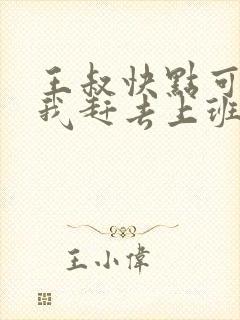 王叔快點可
我赶去上班
王小偉